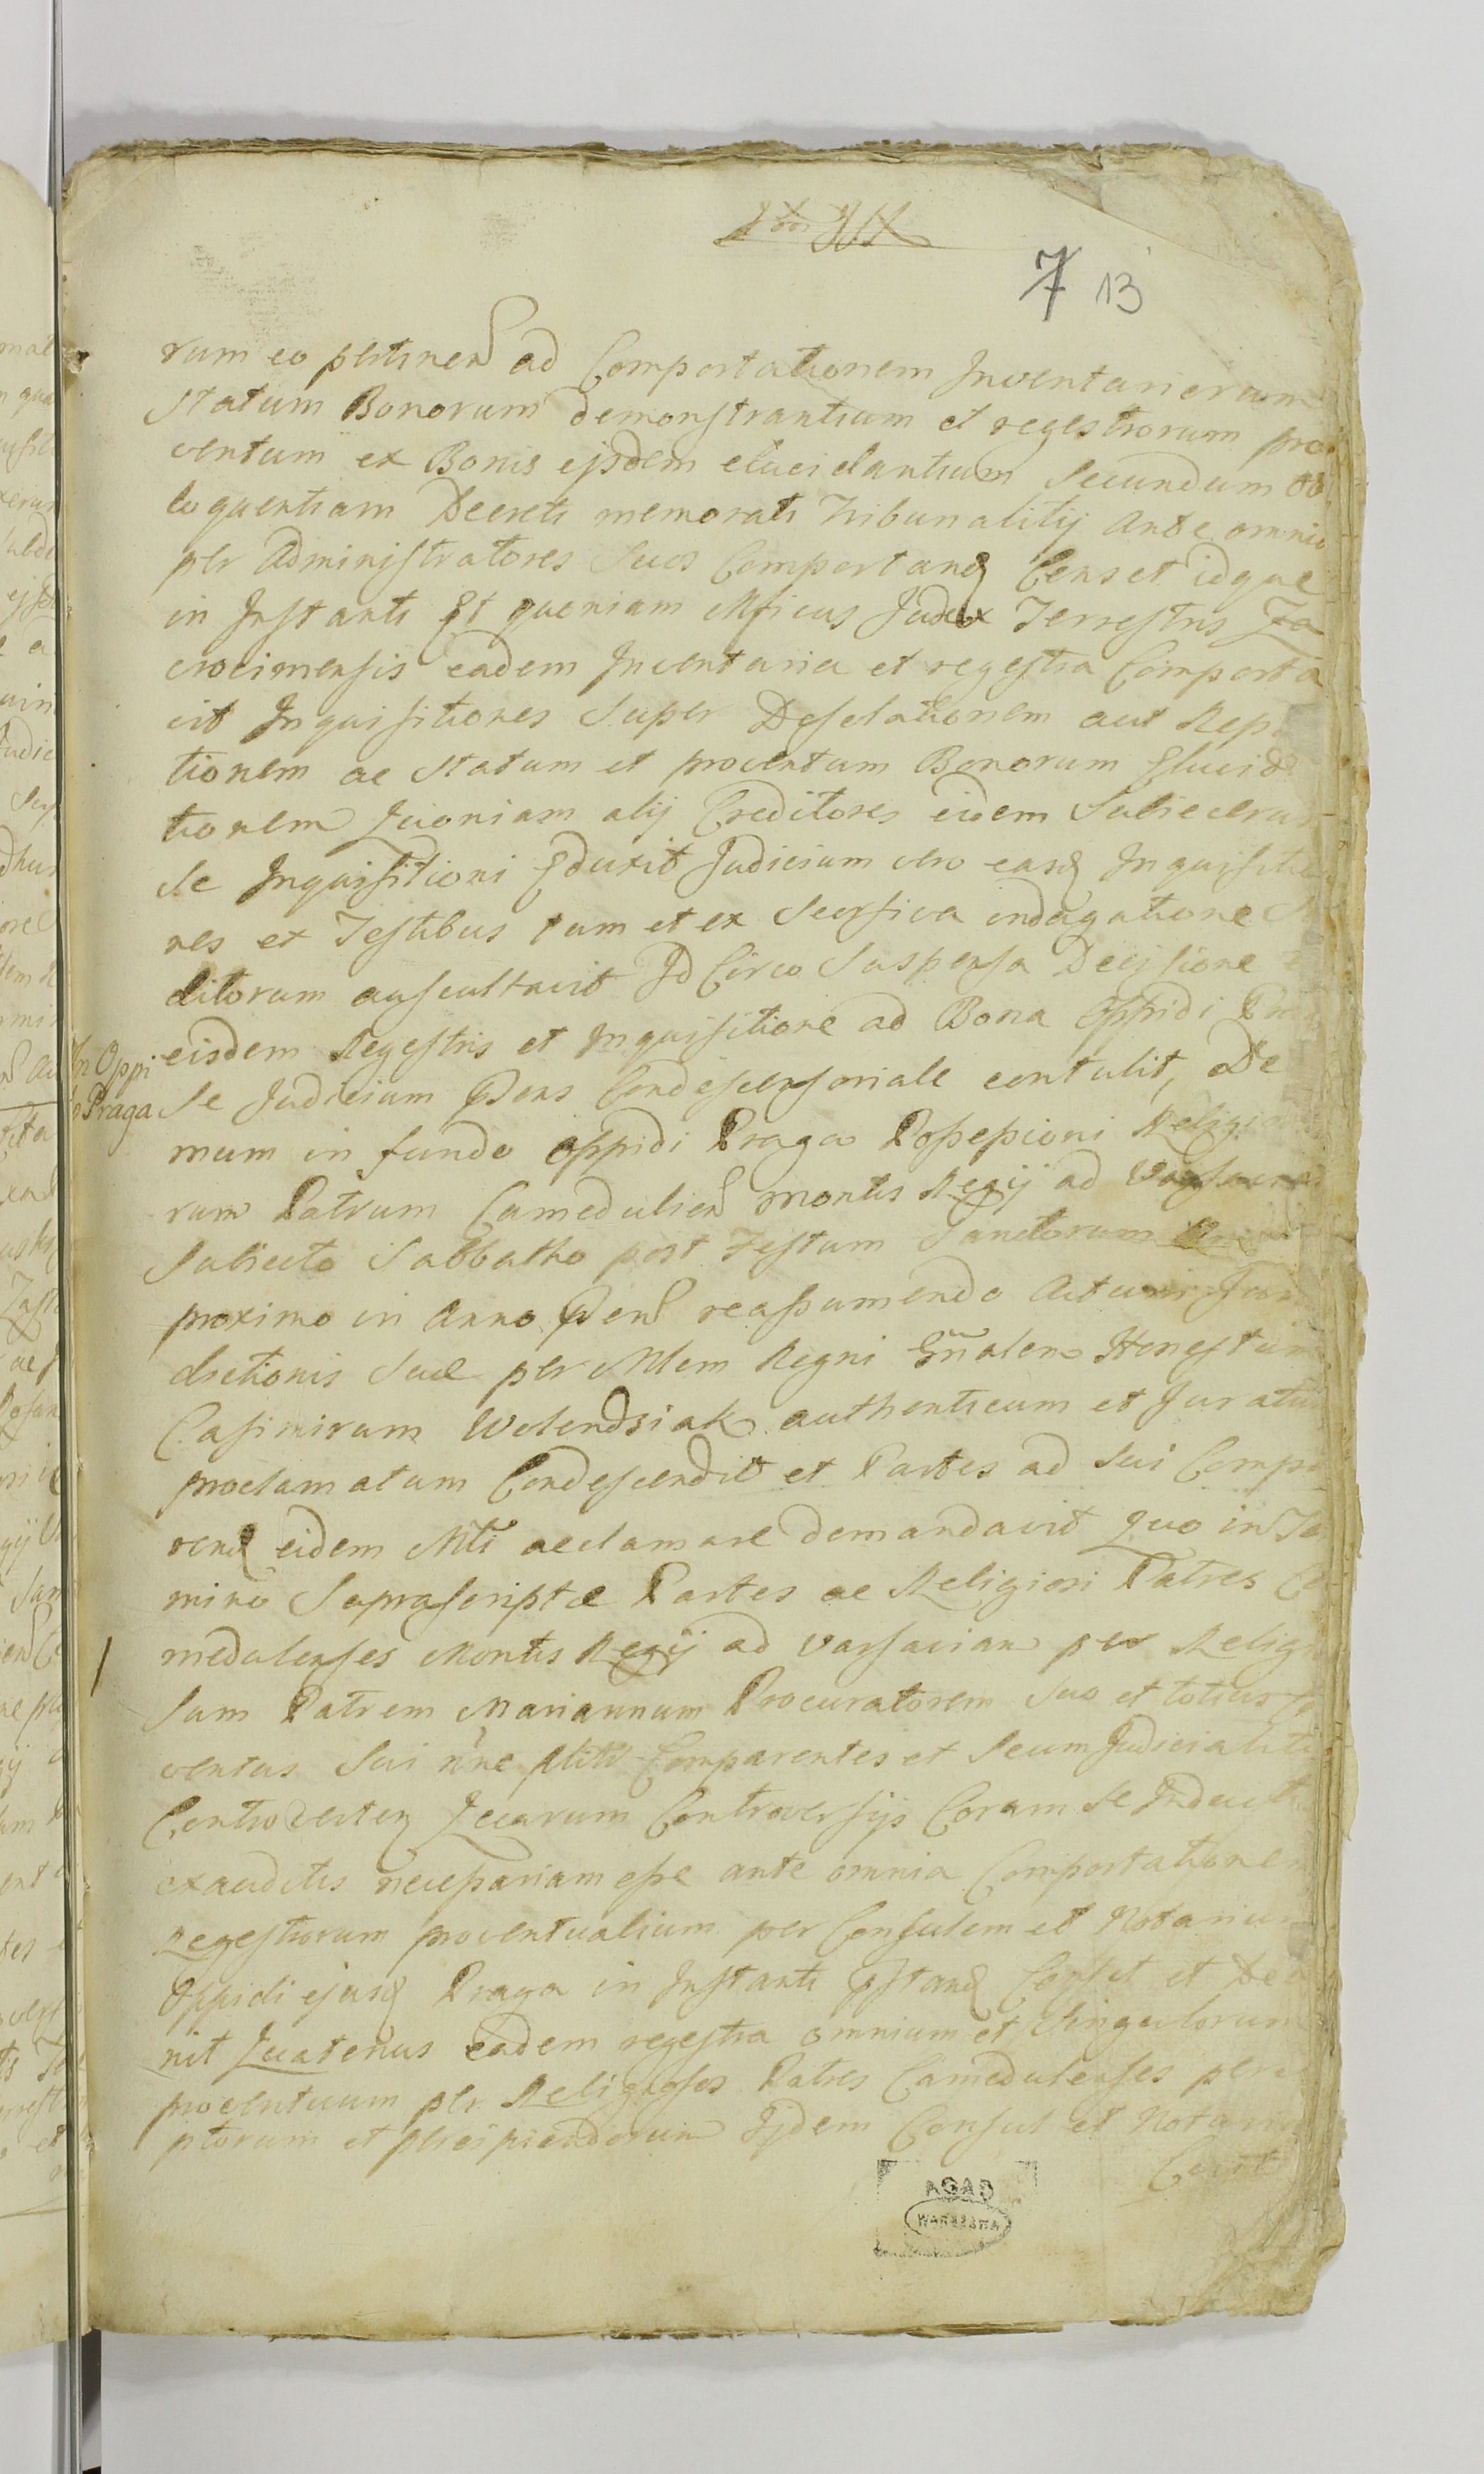 7 13
rum eo pertinen ad Comportationem Inventariorum
Statum Bonorum demonstrantium et regestrorum pro
ventum ex Bonis ejsdem elucidantium Secundum
loquentiam Decreti memorati Tribunalitij Ante omnia
per Administratores Suos Comportand Censet idque
in Instanti Et quoniam Mficus Judex Terrestris Za
crocimensis eadem Inventaria et regestra Comporta
vit Inquisitiones Super Desolationem aut
tionem ac Statum et proventum Bonorum Elucida
tionem Quoniam alij Creditores eidem Subiecerunt
Se Inquisitioni Eduxit Judicium vero easd Inquisitio
nes ex Testibus tum et ex Seorsiva indagatione
ditorum auscultavit Id Circo Suspensa Decisione
eisdem Regestris et Inquisitione ad Bona Oppidi
In Oppi
Praga
Se Judicium Pens Condescensoriale contulit, De
mum in fundo Oppidi Praga Possessioni
rum Patrum Camedulien Montis Regij ad
Subiecto Sabbatho post Festum Sanctorum
proximo in Anno Pens reassumendo Actum
dictionis Suae per Mlem Regni Gnalem Honestum
Casimirum Wolendziak authenticum et Juratum
proclamatum Condescendit et Partes ad Sui Compa
rend eidem Mli acclamare demandavit Quo in Ter
mino Suprascriptae Partes ac Religiosi Patres Ca
medulenses Montis Regij ad Varsaviam per Religio
sum Patrem Mariannum Procuratorem Suo et totius Co
ventus Sui nne Comparentes et Secum Judicialiter
Controverten Quarum Controversijs Coram Se Inductis
exauditis necessariam esse ante omnia Comportationem
regestrorum proventualium per Consulem et Notarium
Oppidi ejusd Praga in Instanti Censet et
nit Quatenus eadem regestra omnium et Singulorum
proventuum per Religiosos Patres Camedulenses perce
ptorum et percipiendorum Ijdem Consul et Notarius
AGAD
WARSZAWA